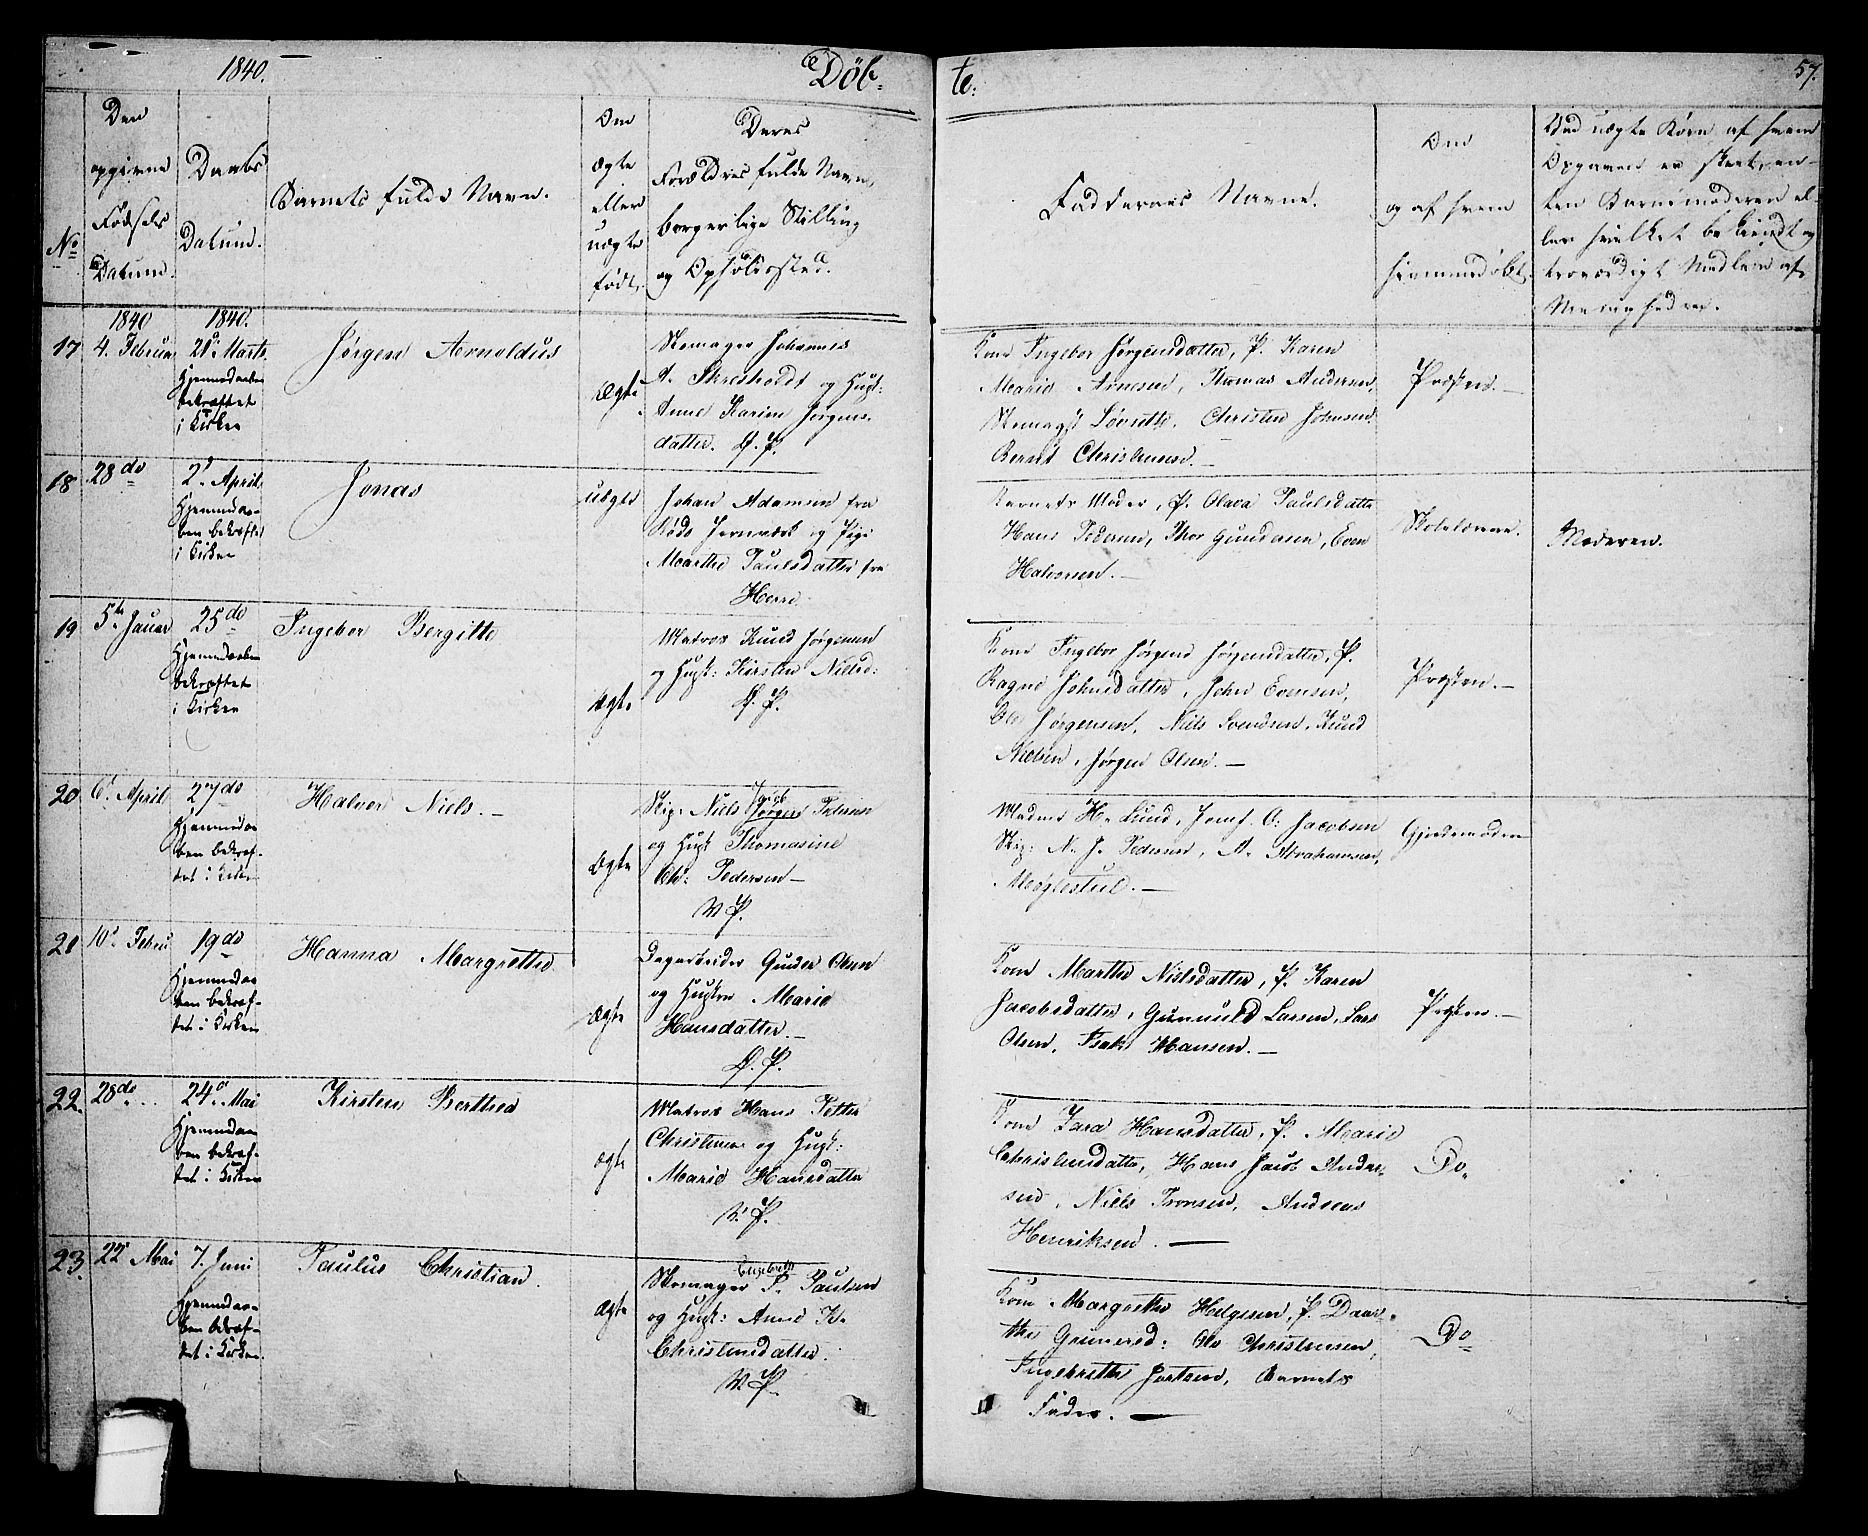 1840.
Døb-
te.
57.
No
Den
opgivne
Fødsels
Datum.
Daabs
Datum.
Barnets fulde Navn.
Om
ægte
eller
uægte
født,
Deres
Forældres fulde Navn,
borgerlige Stilling
og Opholdssted.
Faddernes Navne.
Om
og af hvem
hjemmedøbt.
Ved uægte Børn, af hvem
Opgaven er skeet, en-
ten Barnemoderen el-
ler hvilket bekiendt og
troværdigt Medlem af
Menigheden.
17
1840
4. Februar
1840.
21de Marts.
Hjemmedaaben
bekræftet
i Kirken
Jørgen Arnoldus
Ægte
Skomager Johannes
A. Skresholdt og Hust:
Anne Karine Jørgens-
datter. L. P.
Kone Ingebor Jørgensdatter, P. Karen
Marie Arnesen, Thomas Andersen,
Christen Johnsen
Bernt Christensen. —
Præsten. —
18
28 do
2d April.
Hjemmedaa-
ben bekræftet
i Kirken
Jonas
uægte
Johan Adamsen fra
Jernværk og Pige
Marthe Paulsdatter fra
Herre
Barnets Moder, P. Olava Paulsdatter
Hans Pedersen, Thor Gundersen, Even
Halvorsen. —
Skolelæreren.
Moderen.
19
5te Januar
25 do
Hjemmedaaben
bekræftet
i Kirken
Ingebor Bergitte
Ægte
Matros Knud Jørgensen
og Hust: Kirsten Nielsd:
L. P.
Kone Ingebor Jørgens Jørgensdatter, P.
Ragne Johnsdatter, John Evensen,
Ole Jørgensen, Niels Svendsen, Knud
Nielsen, Jørgen Olsen. —
Præsten. —
20
6d April
27 do
Hjemmedaa-
ben bekræf-
tet i Kirken
Halvor Niels. —
Ægte
Jacob
Skip: Niels Jørgen Petersen
og Hust Thomasine
Ch: Pedersen —
V P.
Madme H. Lund, Jomf. O: Jacobsen
Skip: N. J. Pedersen, A. Abrahamsen,
Møglestue. —
Gjordemoderen
21
10d Febru
19 do
Hjemmedaa-
ben bekræf-
tet i Kirken
Hanna Margrethe
Ægte
Dagarbeider Gunder Olsen
og Hustru Marie
Hansdatter. —
L. P.
Kone Marthe Nielsdatter, P. Karen
Jacobsdatter, Gunnuld Larsen, Lars
Olsen, Isak Hansen. —
Præsten. —
22.
28 do
24d Mai
Hjemmedaa-
ben bekræf-
tet i Kirken
Kirsten Berthea
ægte
Matros Hans Petter
Christensen og Hust:
Marie Hansdatter
V. P.
Kone Sara Hansdatter, P. Marie
Christensdatter, Hans Jacob Ander-
sen, Niels Tronsen, Andreas
Henriksen. —
Do
23.
22d Mai
7. Juni
Hjemmedaa-
ben bekræf-
tet i Kirken.
Paulus Christian.
Ægte
Skomager P. Paulsen
og Hust: Anne K.
Christensdatter.
V. P.
Kone Margrethe Helgesen, P. Daar-
the Grunered: Ole Christensen,
Ingebrethe Barnets
Fader. —
Do